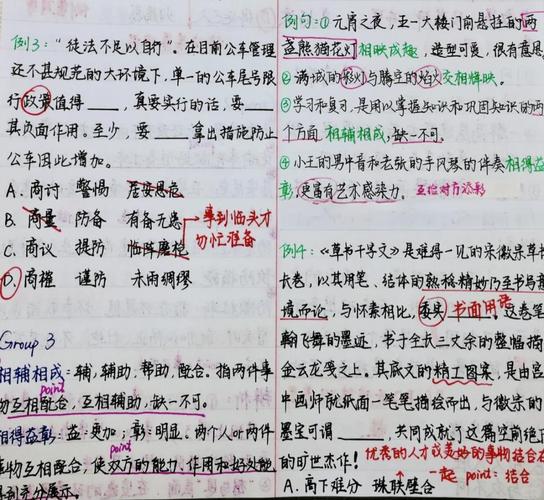 例3：“徒法不足以自行”。在目前公车管理
还不甚规范的大环境下，单一的公车尾号限
行政策值得____，真要实行的话，要____
其负面作用。至少，要____拿出措施防止
公车因此增加。
A. 商讨 警惕 居安思危
B. 商量 防备 有备无患
C. 商议 提防 临阵磨枪
事到临头才
匆忙准备
D. 商榷 谨防 未雨绸缪
Group 3
相辅相成：辅，辅助，帮助，配合。指两件事
point
物互相配合，互相辅助，缺一不可。
相得益彰：益：更加；彰：明显。两个人or两件
point
事物互相配合，使双方的能力、作用和好处能
得到充分展示。
例句：①元宵之夜，五一大楼门前悬挂的两
盏熊猫花灯相映成趣，造型可爱，很有意思
②满城的彩灯与腾空的焰火交相辉映。
③学习和复习，是用以掌握知识和巩固知识的两
个方面，相辅相成，缺一不可。
④小王的男中音和老张的手风琴的伴奏相得益
彰，更富有艺术感染力。互给对方添彩
例4：《草书千字文》是难得一见的宋徽宗草书
长卷，以其用笔、结体的熟稔精妙乃至书写意
境而论，与怀素相比，委实____。这卷笔
书面用语
翰飞舞的墨迹，书于全长三丈余的整幅描
金云龙笺之上，其底文的精工图案，是由宫
中画师就纸面一笔笔描绘而出，与徽宗的
墨宝可谓____，共同成就了这篇空前绝后
的旷世杰作！
优秀的人才或美好的事物结合在
一起 point：结合
A. 高下难分 珠联璧合